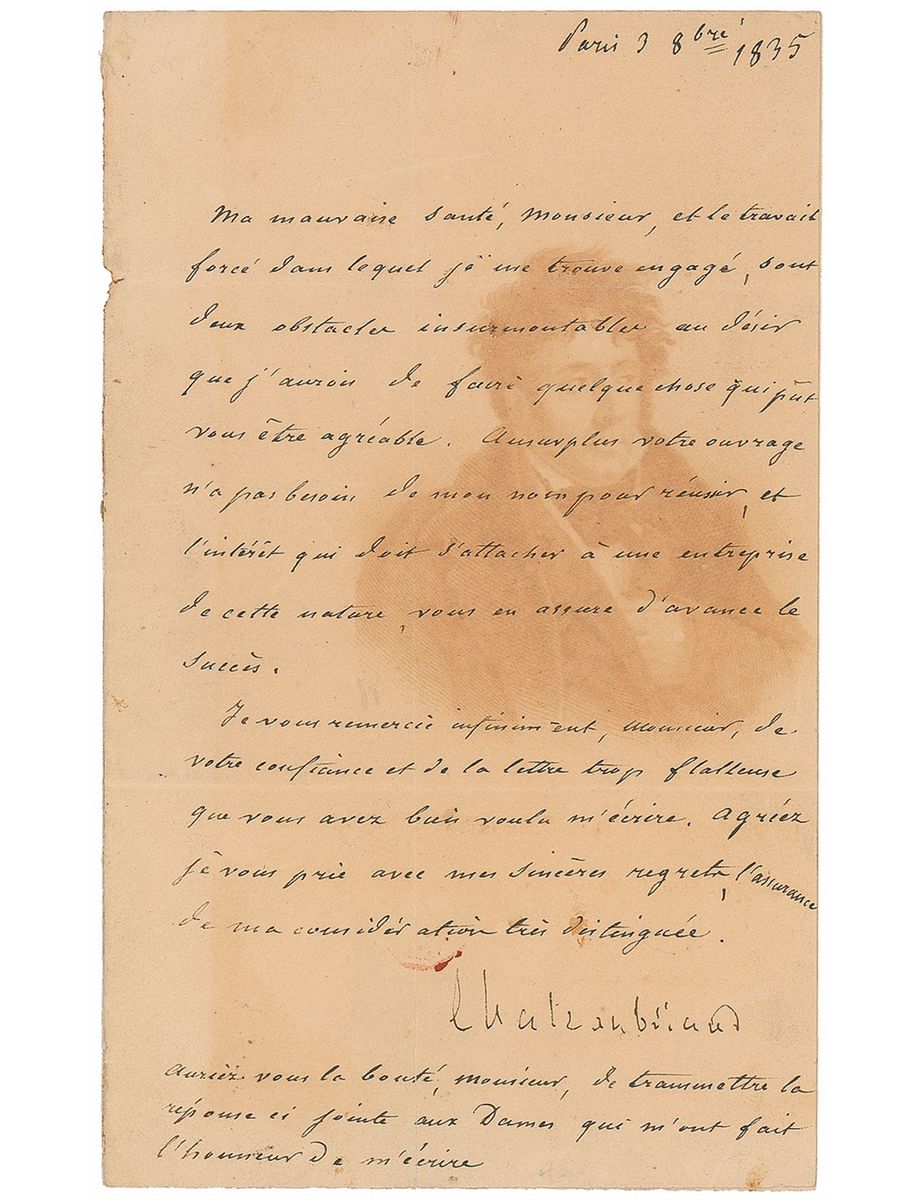 Paris 3 8bre 1835
Ma mauvaise santé, Monsieur, et le travail
forcé dans lequel je me trouve engagé, sont
deux obstacles insurmontables au désir
que j'aurois de faire quelque chose qui pût
vous être agréable. Au surplus votre ouvrage
n'a pas besoin de mon nom pour réussir, et
l'intérêt qui doit s'attacher à une entreprise
de cette nature, vous en assure d'avance le
succès.
Je vous remercie infiniment, Monsieur, de
votre confiance et de la lettre trop flatteuse
que vous avez bien voulu m'écrire. Agréez
je vous prie avec mes sincères regrets, l'assurance
de ma considération très distinguée.
Chateaubriand
Auriez vous la bonté, Monsieur, de transmettre la
réponse ci jointe aux Dames qui m'ont fait
l'honneur de m'écrire